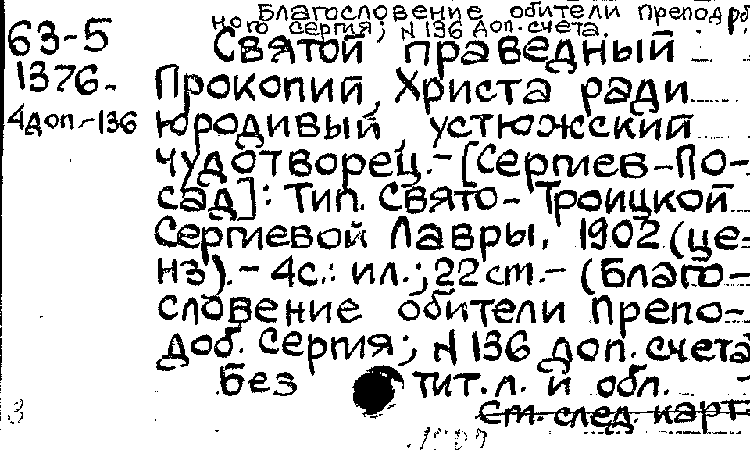 Благословение обители преподоб
ного Сергия; N 136 доп. счета.
63-5 Святой праведный
1376- Прокопий, Христа ради
4доп.-136 юродивый устюжский
чудотворец.-[Сергиев-По-
сад]: Тип. Свято-Троицкой
Сергиевой Лавры, 1902 (це-
нз).- 4с.: ил.; 22 cm.- (Благо-
словение обители Препо-
доб. Сергия; N 136 доп. счета
Без тит. л. и обл.
3 См. след. карт